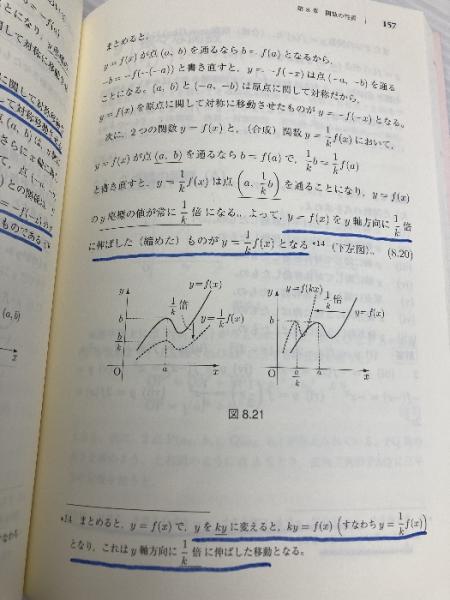 第8章 関数の性質 157
まとめると,
y=f(x) が点 (a, b) を通るなら b=f(a) となるから,
-b=-f(-(-a)) と書き直すと, y=-f(-x) は点 (-a, -b) を通る
ことになる。(a, b) と (-a, -b) は原点に関して対称だから,
y=f(x) を原点に関して対称に移動させたものが y=-f(-x) となる。
次に, 2つの関数 y=f(x) と, (合成) 関数 y=1/k f(x) において,
y=f(x) が点 (a, b) を通るなら b=f(a) で, 1/k b=1/k f(a)
と書き直すと, y=1/k f(x) は点 (a, 1/k b) を通ることになり, y=f(x)
の y 座標の値が常に 1/k 倍になる。よって, y=f(x) を y 軸方向に 1/k 倍
に伸ばした (縮めた) ものが y=1/k f(x) となる *14 (下左図)。 (8.20)
y y=f(x) 1/k 倍 y=1/k f(x) b b/k O a x
y y=f(kx) 1/k 倍 y=f(x) b O a/k a x
図 8.21
*14 まとめると, y=f(x) で, y を ky に変えると, ky=f(x) (すなわち y=1/k f(x))
となり, これは y 軸方向に 1/k 倍に伸ばした移動となる。